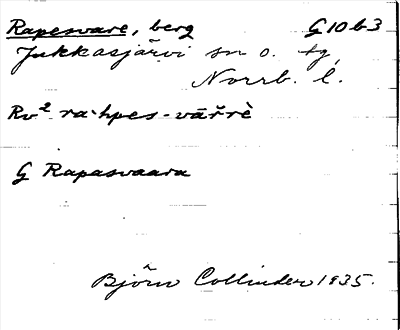 Rapesvare, berg G10b3
Jukkasjärvi sn o. tg,
Norrb. l.
Rv² ra·hpes-vāřrè
G Rapasvaara
Björn Collinder 1935.